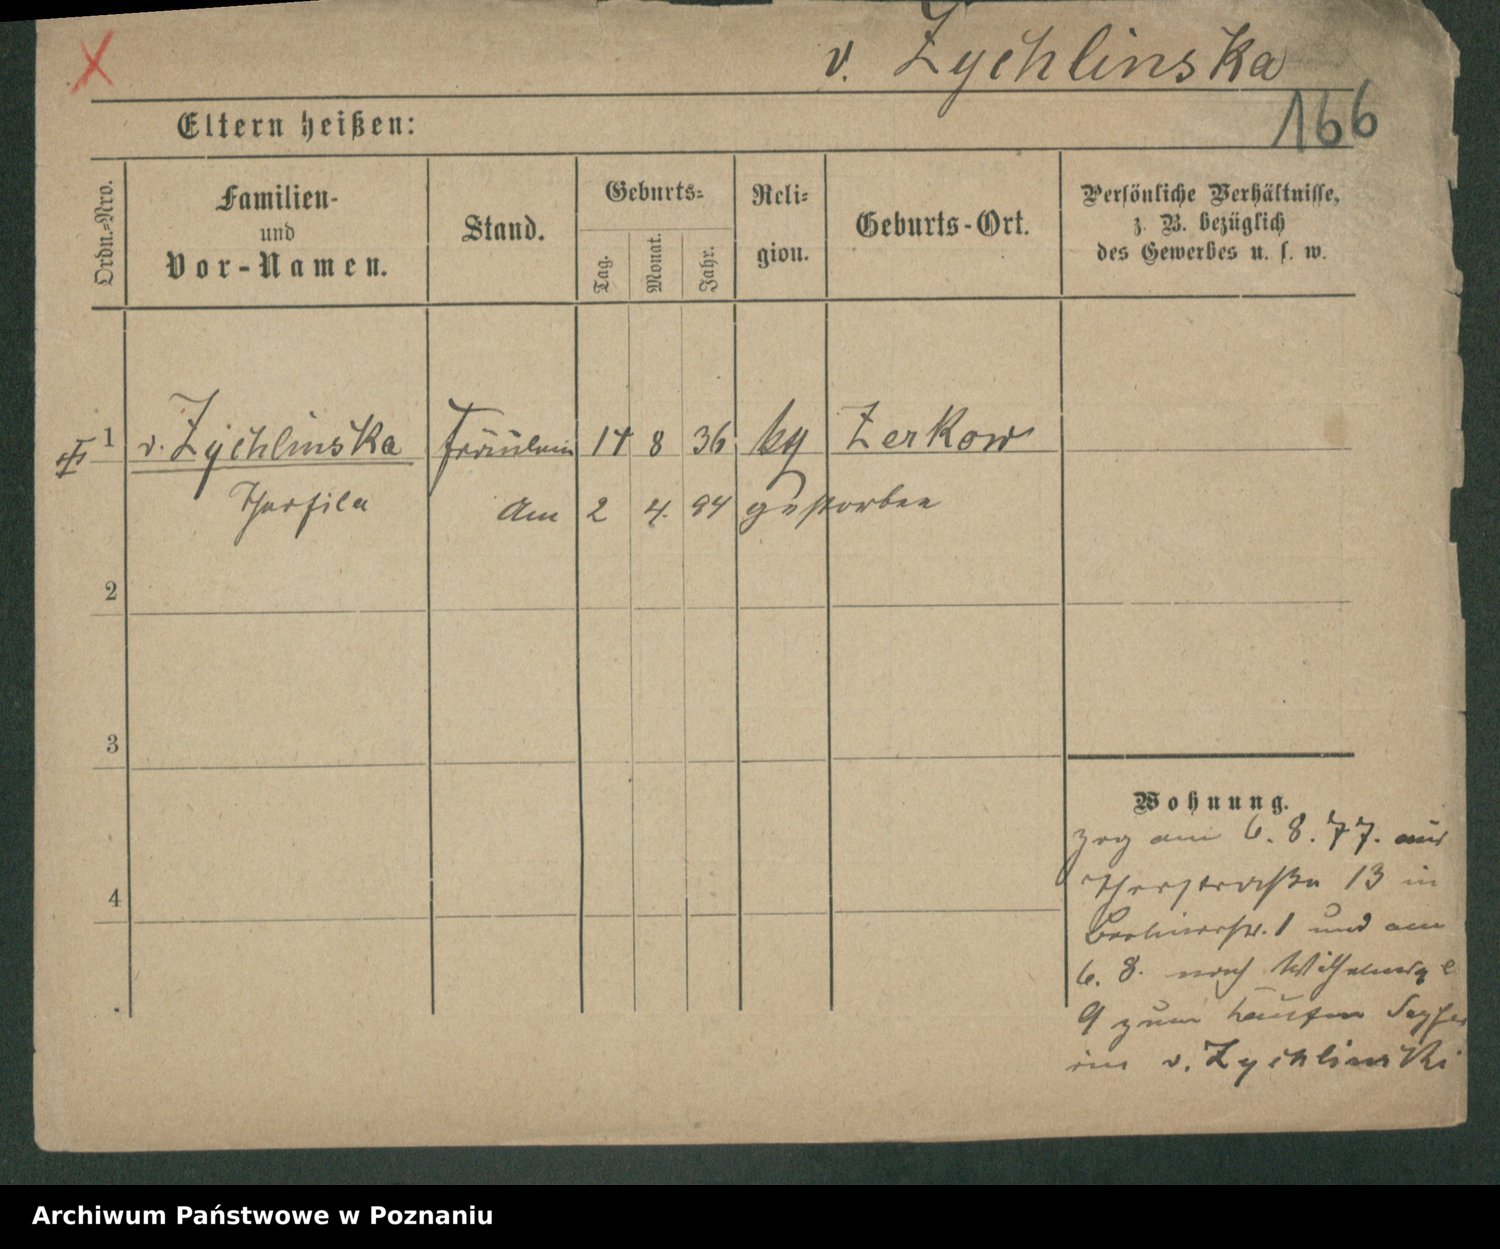 v. Zychlinska
166
Eltern heißen:
Ordn.-Nro.
Familien-
und
Vor-Namen.
Stand.
Geburts-
Tag.
Monat.
Jahr.
Reli-
gion.
Geburts-Ort.
Persönliche Verhältnisse,
z. B. bezüglich
des Gewerbes u. s. w.
1 v. Zychlinska Fräulein 14 8 36 kg Zerkow
Am 2 4. 94 gestorben
2
3
4
Wohnung.
zog am 6. 8. 77. aus
13 in
1 und am
6. 8. nach
9 zum
v. Zychlinski
Archiwum Państwowe w Poznaniu